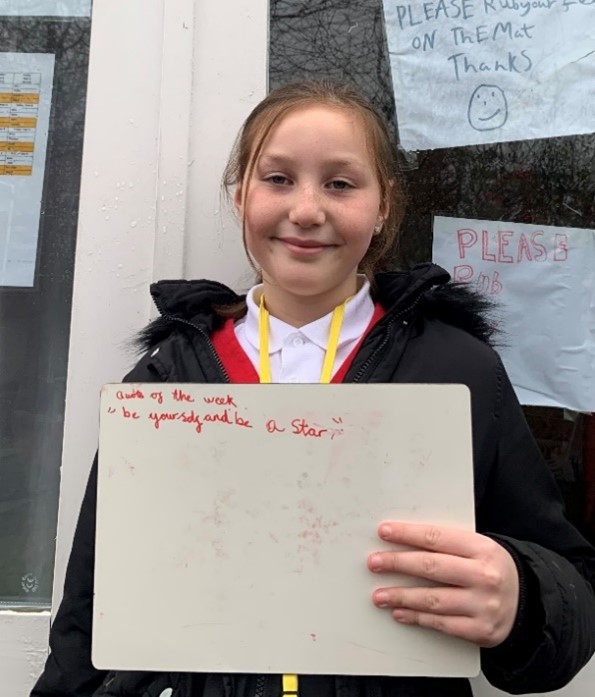 PLEASE Rub your
ON ThE Mat
Thanks
PLEASE
Rub
of the week
"be yourself and be a Star"